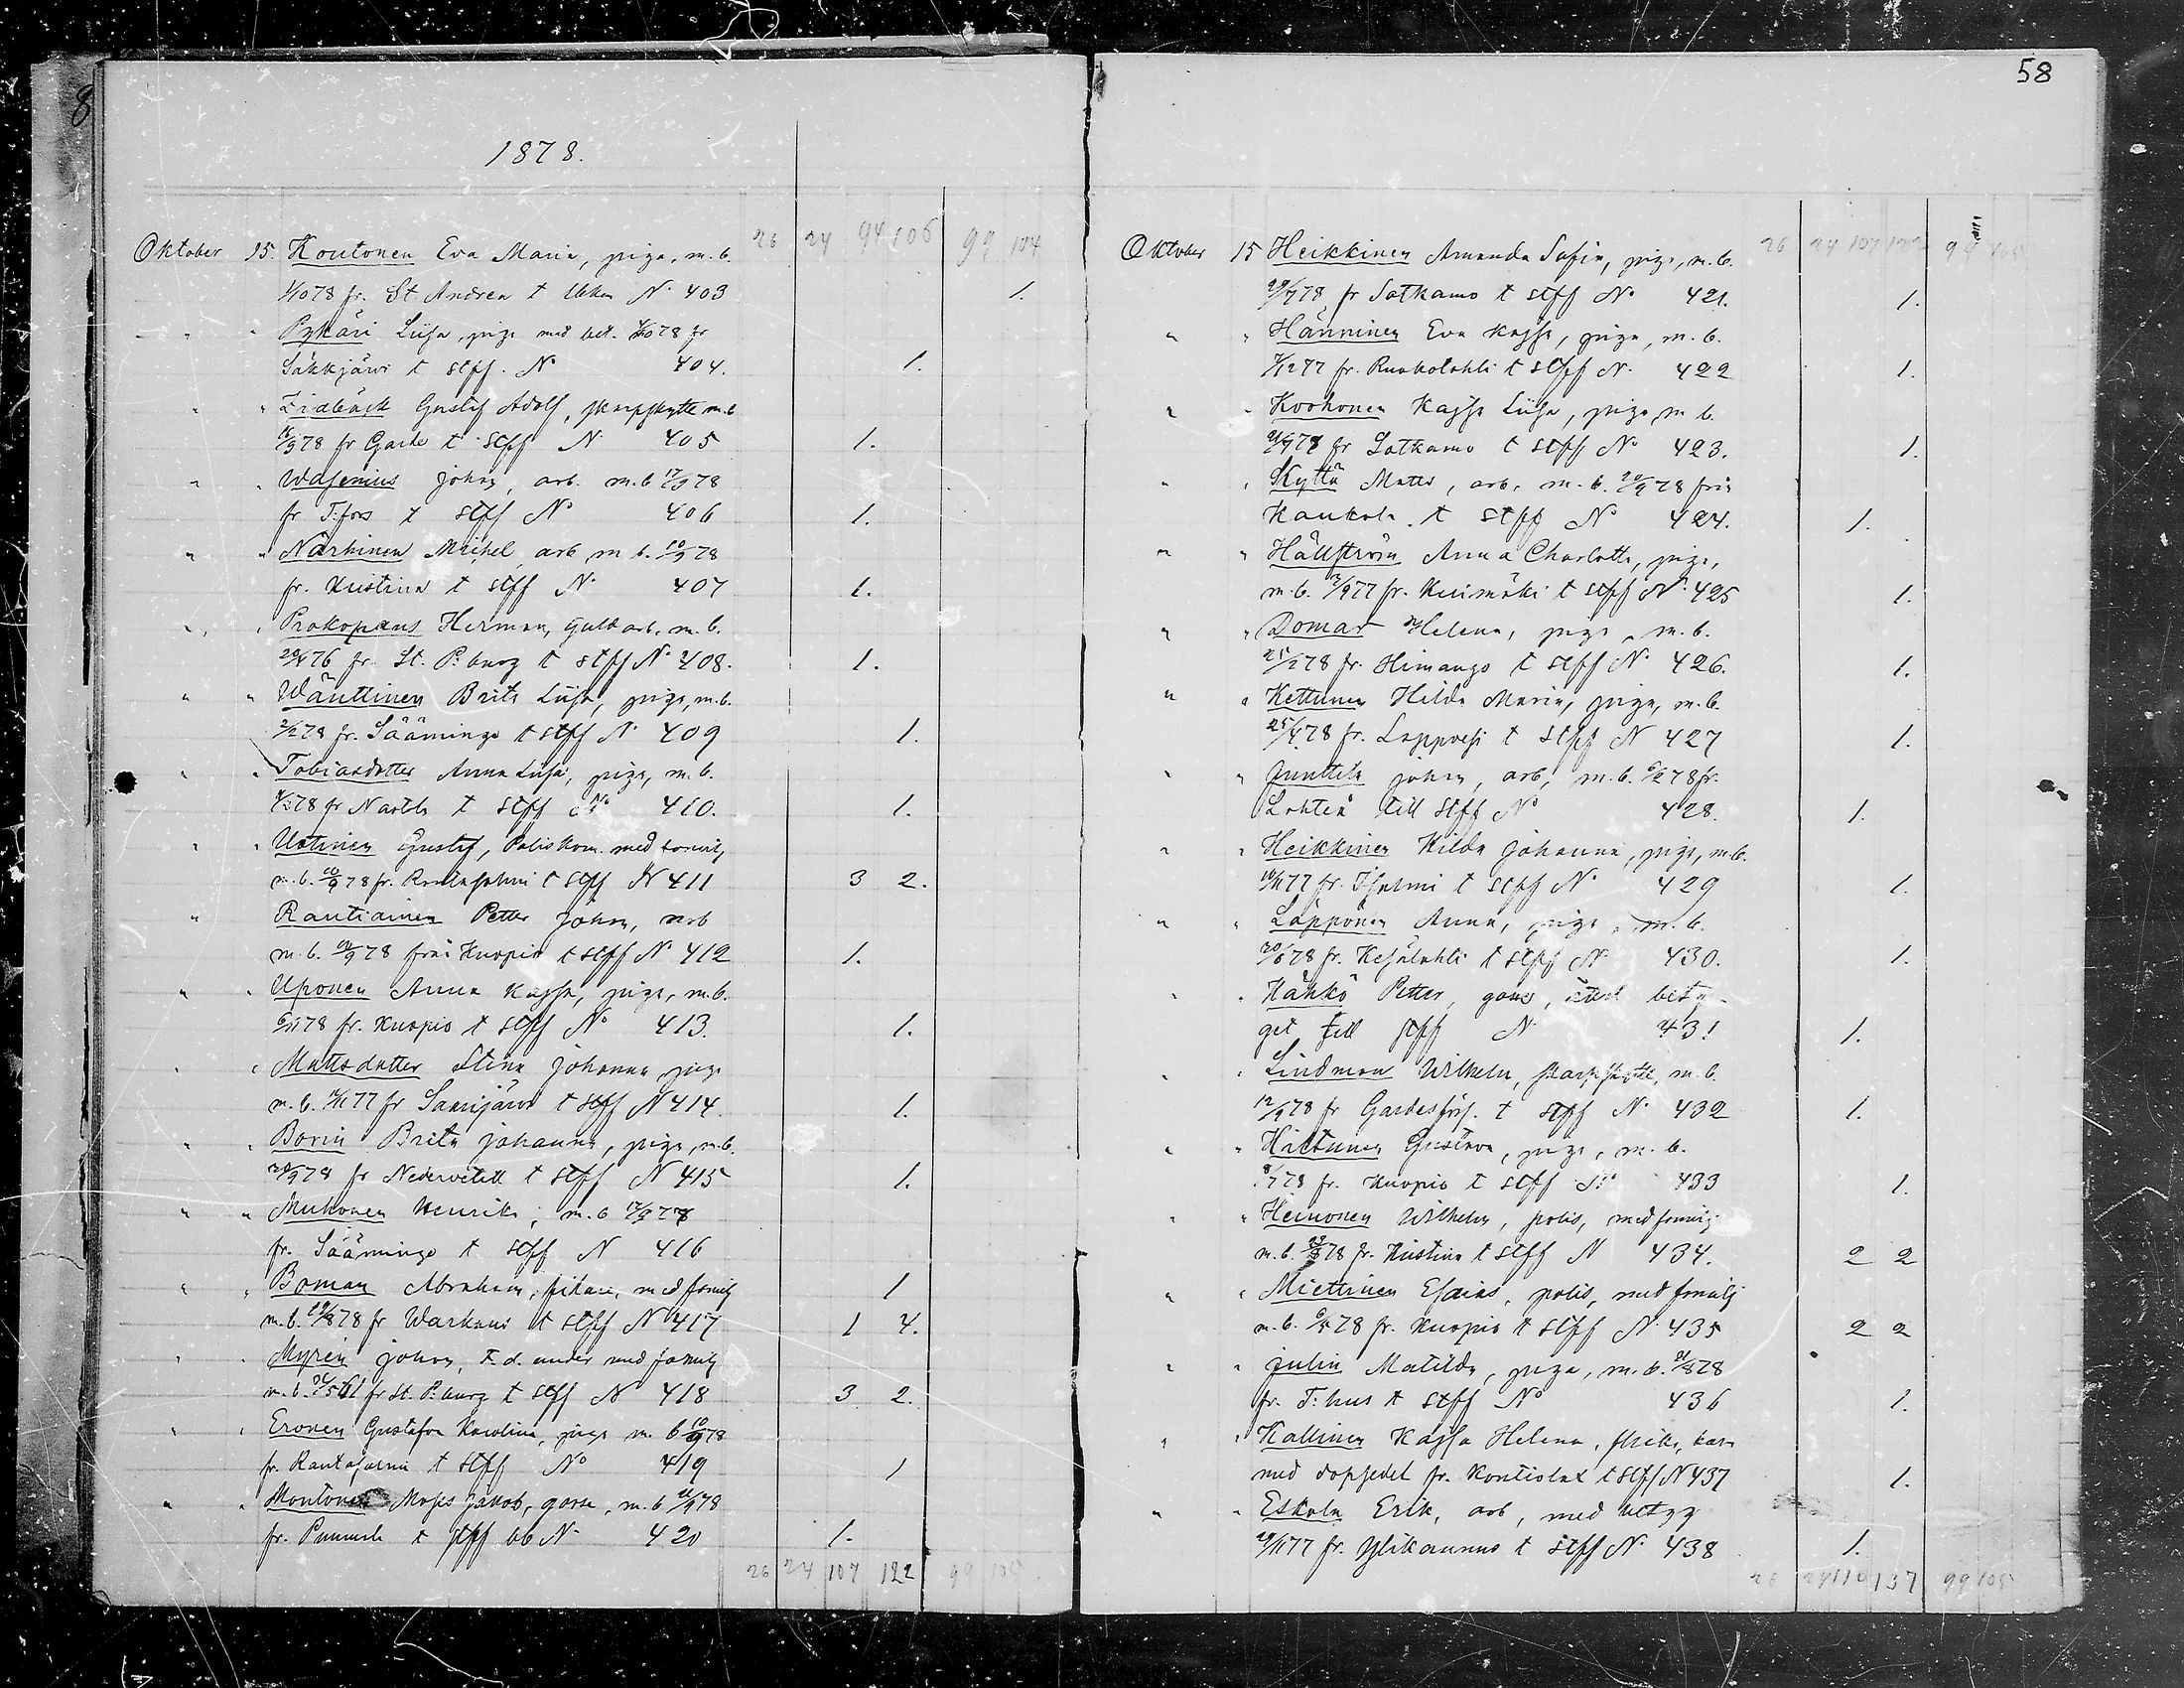 58
1878.
26 24 94 106 99 104
Oktober 15. Koutonen Eva Maria, piga, m. b.
1/10 78 fr. St. Andrea t N. 403 1.
" " Pykäri Liisa, piga med bet. 1/10 78 fr
Säkkjärvi t stff. No 404. 1.
" " Zidbäck Gustaf Adolf, skarpskytte m. b
/9 78 fr Garde t stff N. 405 1.
" " Wasenius Johan, arb. m. b 17/9 78
fr T:fors t stff No 406 1.
" " Närhinen Mickel, arb, m b. 10/9 78
fr. Kristina t stff N. 407 1.
" " Prokopeus Herman, Guldarb. m. b.
20/4 76 fr. St. P:burg t stff N. 408. 1.
" " Wänttinen Brita Liisa, piga, m. b.
2/2 78 fr. Sääminge t stff N. 409 1.
" " Tobiasdotter Anna Liisa, piga, m. b.
/2 78 fr Nastla t stff No 410. 1.
" " Ustinen Gustaf, Poliskon. med familj
m. b. 10/9 78 fr. Rantasalmi t stff N 411 3 2.
" Rautiainen Petter Johan, arb
m. b. /9 78 från Kuopio t stff N 412 1.
" " Uponen Anna Kajsa, piga, m. b.
78 fr. Kuopio t stff No 413. 1.
" " Mattsdotter Stina Johanna, piga
m. b. 77 fr Saarijärvi t stff N 414. 1.
" " Borin Brita Johanna, piga, m. b.
20/9 78 fr Nedervetell t stff N 415 1.
" " Muhonen Henrika, m. b 17/9 77
fr. Sääminge t stff N 416
" " Boman Abraham, filare, med familj 1
m. b. 29/8 78 fr Warkaus t stff N 417 1 4.
" " Myren Johan, F. d. under med familj
m. b. 24/5 61 fr St. P:burg t stff N 418 3 2.
" " Eronen Gustafva Karolina, piga m. b 10/9 78
fr. Rantasalmi t stff No 419 1
" " Moutonen Moses Jakob, gosse, m. b 21/9 78
fr. Pummala t stff bb N. 420 1.
26 24 107 122 99 105
26 24 107 122 99 105
Oktober 15 Heikkinen Amanda Sofia, piga, m. b.
29/7 78 fr Sotkamo t stff No 421. 1.
" " Hänninen Eva Kajsa, piga, m. b.
7/12 77 fr. Ruokolahti t stff N. 422 1.
" " Korhonen Kajsa Liisa, piga, m b.
21/9 78 fr Sotkamo t stff No 423. 1.
" " Kyttä Matts, arb, m. b. 20/9 78 från
Kaukola t stff No 424. 1.
" " Hällström Anna Charlotta, piga,
m. b. 7/9 77 fr. Kuimäki t stff N. 425 1.
" " Domar Helena, piga, m. b.
25/2 78 fr. Himango t stff N. 426. 1.
" " Kettunen Hilda Maria, piga, m. b.
25/4 78 fr. Lappvesi t stff N 427 1.
" " Junttila Johan, arb, m. b. 6/2 78 fr.
Lohteå till stff No 428. 1.
" " Heikkinen Hilda Johanna, piga, m. b.
19/11 77 fr. Idensalmi t stff N. 429 1.
" " Läpponen Anna, piga, m. b.
20/6 78 fr. Kesälahti t stff N 430. 1.
" " Hähkö Petter, gosse, utan bety-
get till stff N. 431 1.
" " Lindman Wilhelm, skarpskytte, m. b.
12/9 78 fr Gardesförs. t stff N. 432 1.
" " Hiltunen Gustava, piga, m. b.
8/7 78 fr. Kuopio t stff No 433 1.
" " Heinonen Wilhelm, polis, med familj
m. b. 23/8 78 fr. Kristina t stff N 434. 2 2
" " Miettinen Esaias, polis, med familj
m. b. 6/5 78 fr. Kuopio t stff N. 435 2 2
" " Julin Matilda, piga, m. b. 21/8 78
fr. T:hus t stff No 436 1.
" " Kallinen Kajsa Helena, flicka, barn
med dopsedel fr. Kontiolax t stff N 437 1.
" " Eskola Erik, arb, med betyg
29/11 77 fr. Ylikannus t stff N. 438 1.
26 24 110 137 99 105